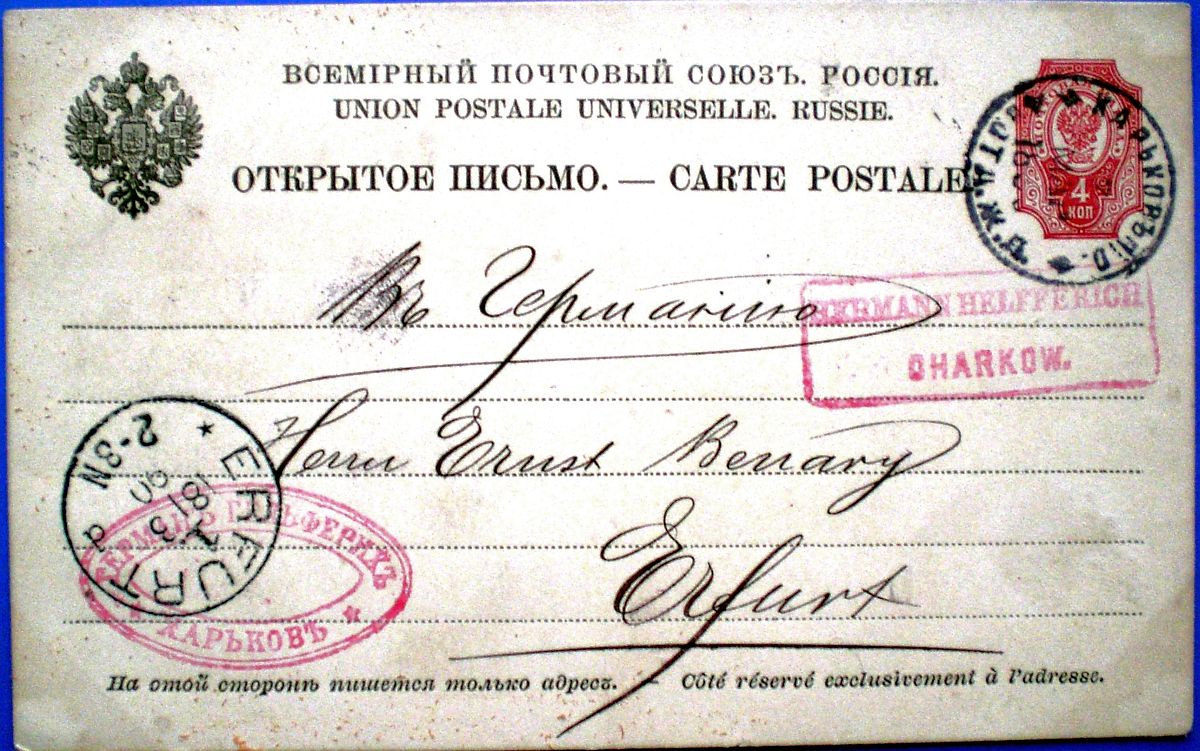 ВСЕМІРНЫЙ ПОЧТОВЫЙ СОЮЗЪ. РОССІЯ.
UNION POSTALE UNIVERSELLE. RUSSIE.
ОТКРЫТОЕ ПИСЬМО. — CARTE POSTALE
4
КОП
ХАРЬКОВЪ
Въ Германію
HERMANN HELFFERICH
CHARKOW.
Herrn Ernst Benary
Erfurt
ERFURT
d
18 13
90
2-3N
ГЕРМАНЪ ГЕЛЬФЕРИХЪ
ХАРЬКОВЪ
На этой сторонѣ пишется только адресъ. — Côté réservé exclusivement à l'adresse.